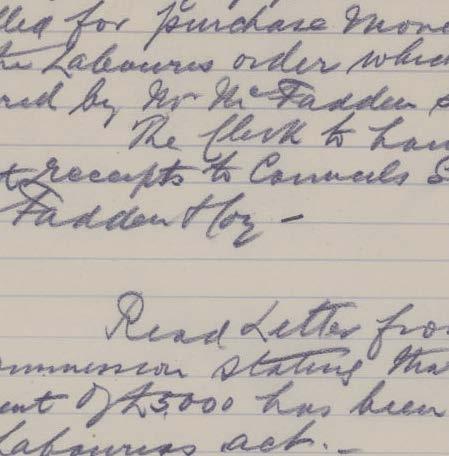 lled for purchase Mone
the Labourers order which
red by Mr McFadden s
The Clerk to han
t receipts to Councils S
Fadden & Coy -
Read Letter fro
ommission stating tha
ent of £5000 has been
Labourers act. -